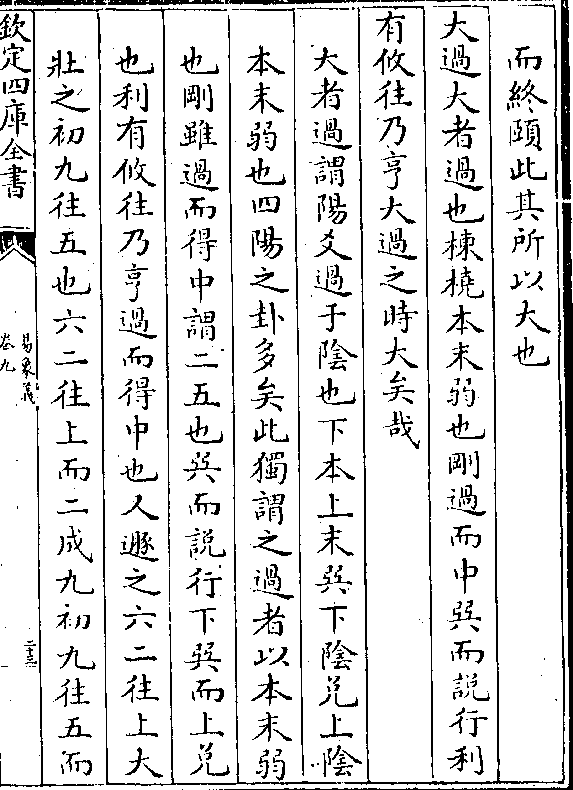 而終頤此其所以大也
大過大者過也棟橈本末弱也剛過而中巽而説行利
有攸往乃亨大過之時大矣哉
大者過謂陽爻過于陰也下本上末巽下陰兌上陰
本末弱也四陽之卦多矣此獨謂之過者以本末弱
也剛雖過而得中謂二五也巽而説行下巽而上兌
也利有攸往乃亨過而得中也人遯之六二往上大
壯之初九往五也六二往上而二成九初九往五而
欽定四庫全書
易象義
卷九
二十三